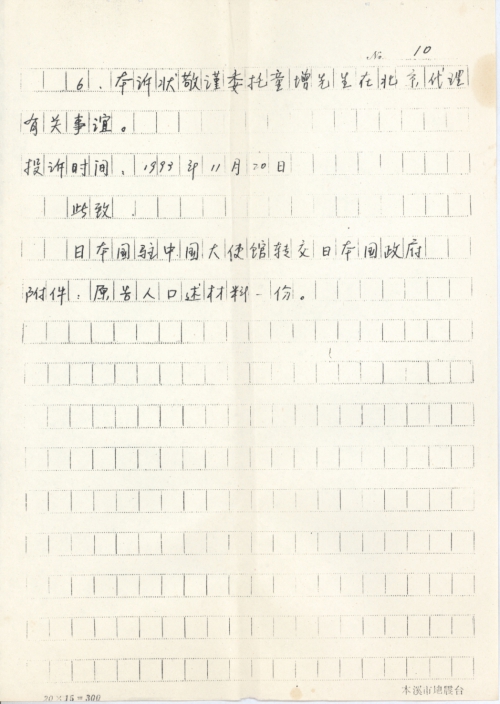 No 10
6、本诉状敬谨委托童增先生在北京代理
有关事谊。
投诉时间:1993年11月20日
此致
日本国驻中国大使馆转交日本国政府
附件:原告人口述材料一份。
20×15=300
本溪市地震台